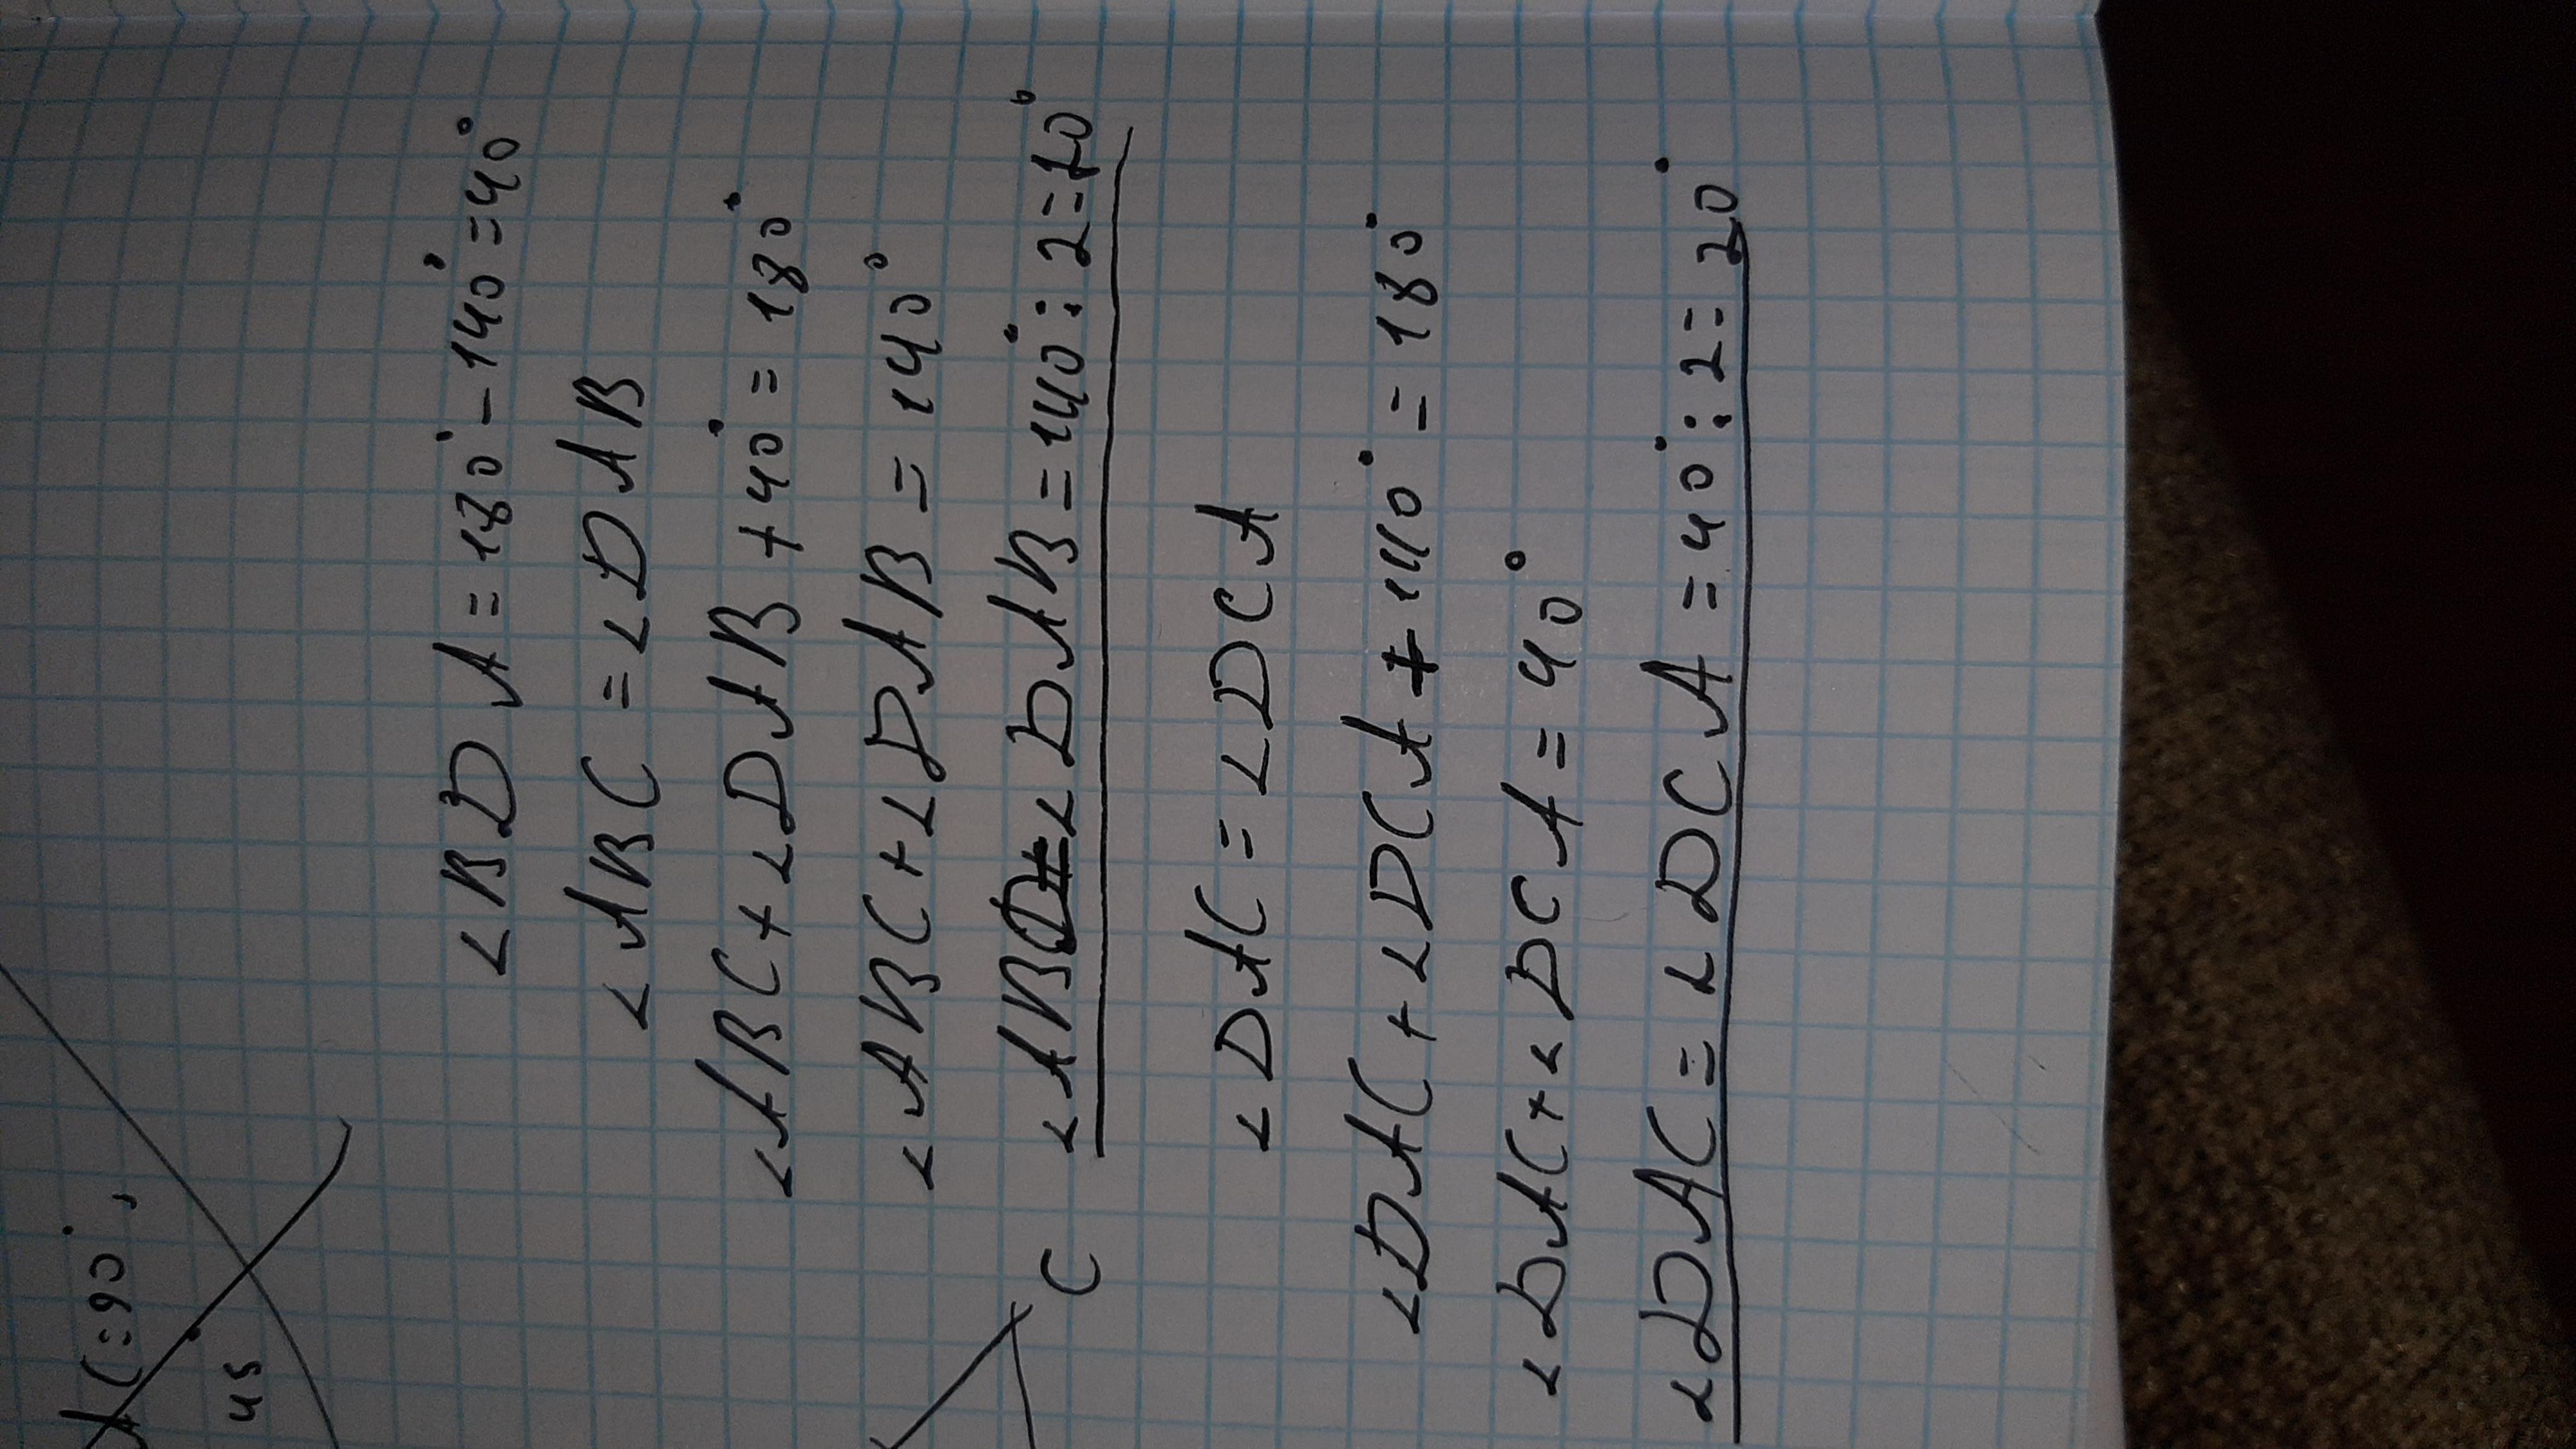 AC = 90°,
45
∠BDA = 180° - 140° = 40°
∠ABC = ∠DAB
∠ABC + ∠DAB + 40° = 180°
∠ABC + ∠DAB = 140°
C
∠ABD = ∠DAB = 140° : 2 = 70°
∠DAC = ∠DCA
∠DAC + ∠DCA + 140° = 180°
∠DAC + ∠DCA = 40°
∠DAC = ∠DCA = 40° : 2 = 20°